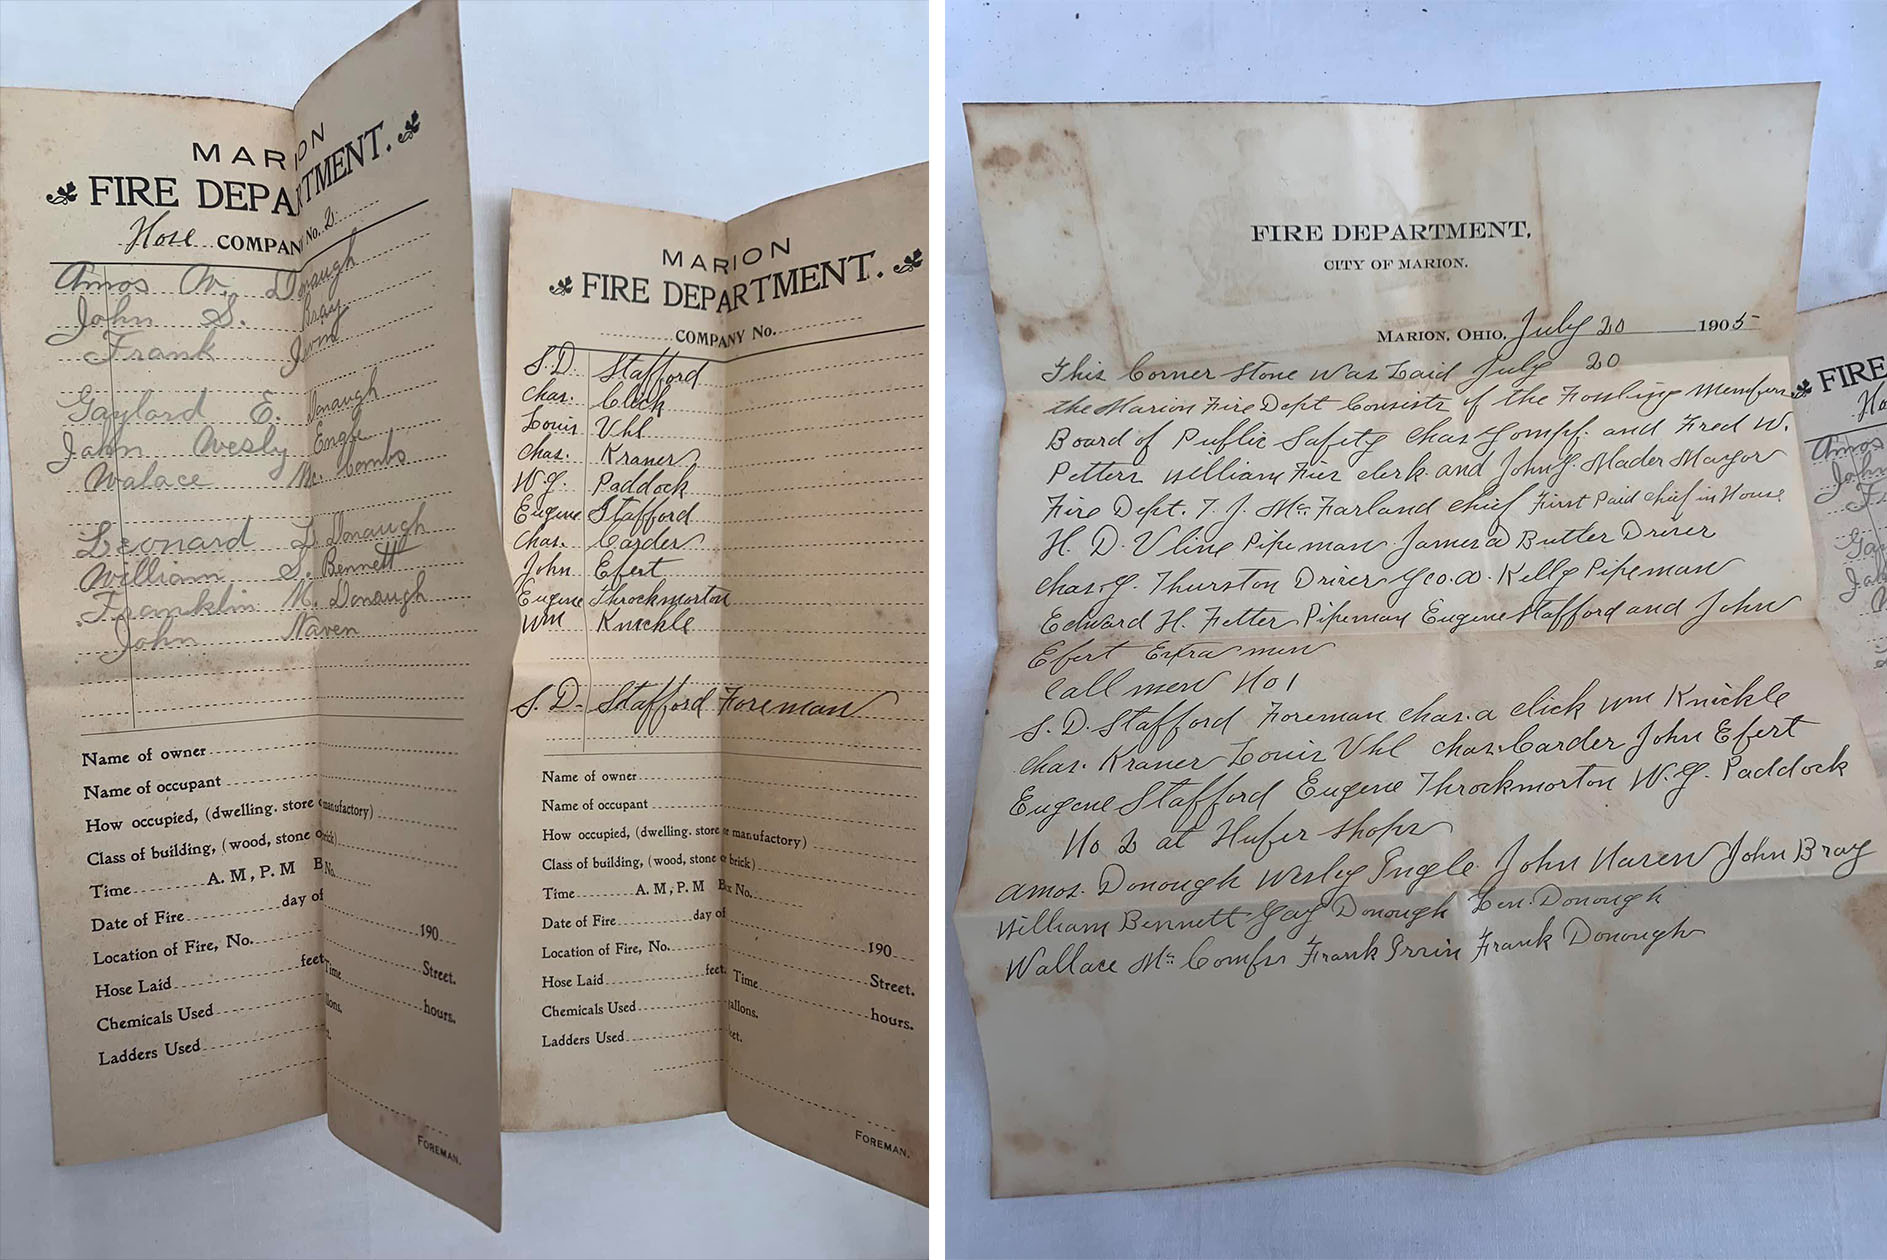 MARION
FIRE DEPARTMENT.
Hose COMPANY No. 2
Amos W. Donaugh
John S. Bray
Frank
Gaylord E. Donaugh
John Wesly Engle
Walace Mc Combs
Leonard D. Donaugh
William S. Bennett
Franklin M. Donaugh
John Naven
Name of owner
Name of occupant
How occupied, (dwelling. store or manufactory)
Class of building, (wood, stone or brick)
Time A. M, P. M B No.
Date of Fire day of 190
Location of Fire, No. Street.
Hose Laid feet. Time hours.
Chemicals Used llons.
Ladders Used t.
FOREMAN.
MARION
FIRE DEPARTMENT.
COMPANY No.
S. D. Stafford
Chas. Click
Louis Vhl
Chas. Kraner
W. G. Paddock
Eugene Stafford
Chas. Carder
John Efert
Eugene Throckmorton
Wm Knickle
S. D. Stafford Foreman
Name of owner
Name of occupant
How occupied, (dwelling. store or manufactory)
Class of building, (wood, stone or brick)
Time A. M, P. M Box No.
Date of Fire day of 190
Location of Fire, No. Street.
Hose Laid feet. Time hours.
Chemicals Used gallons.
Ladders Used eet.
FOREMAN.
FIRE DEPARTMENT,
CITY OF MARION.
MARION, OHIO, July 20 1905
This Corner Stone Was Laid July 20
the Marion Fire Dept Consists of the Fowling Members
Board of Public Safety Chas Gompf. and Fred W.
Petters William Fies clerk and John G. Mader Mayor
Fire Dept. T. J. Mc Farland chief First Paid chief in House
H. D. Vline Pipeman James D Butler Driver
Chas. G. Thurston Driver Geo. W. Kelly Pipeman
Edward H. Fetter Pipeman Eugene Stafford and John
Efert Extra men
Call men No 1
S. D. Stafford Foreman Chas. a click Wm Knickle
Chas. Kraner Louis Vhl Chas. Carder John Efert
Eugene Stafford Eugene Throckmorton W. G. Paddock
No 2 at Hufer Shops
Amos. Donough Wesley Ingle John Naven John Bray
William Bennett Gay Donough Len. Donough
Wallace Mc Combs Frank Irvin Frank Donough
FIRE
Amos
John